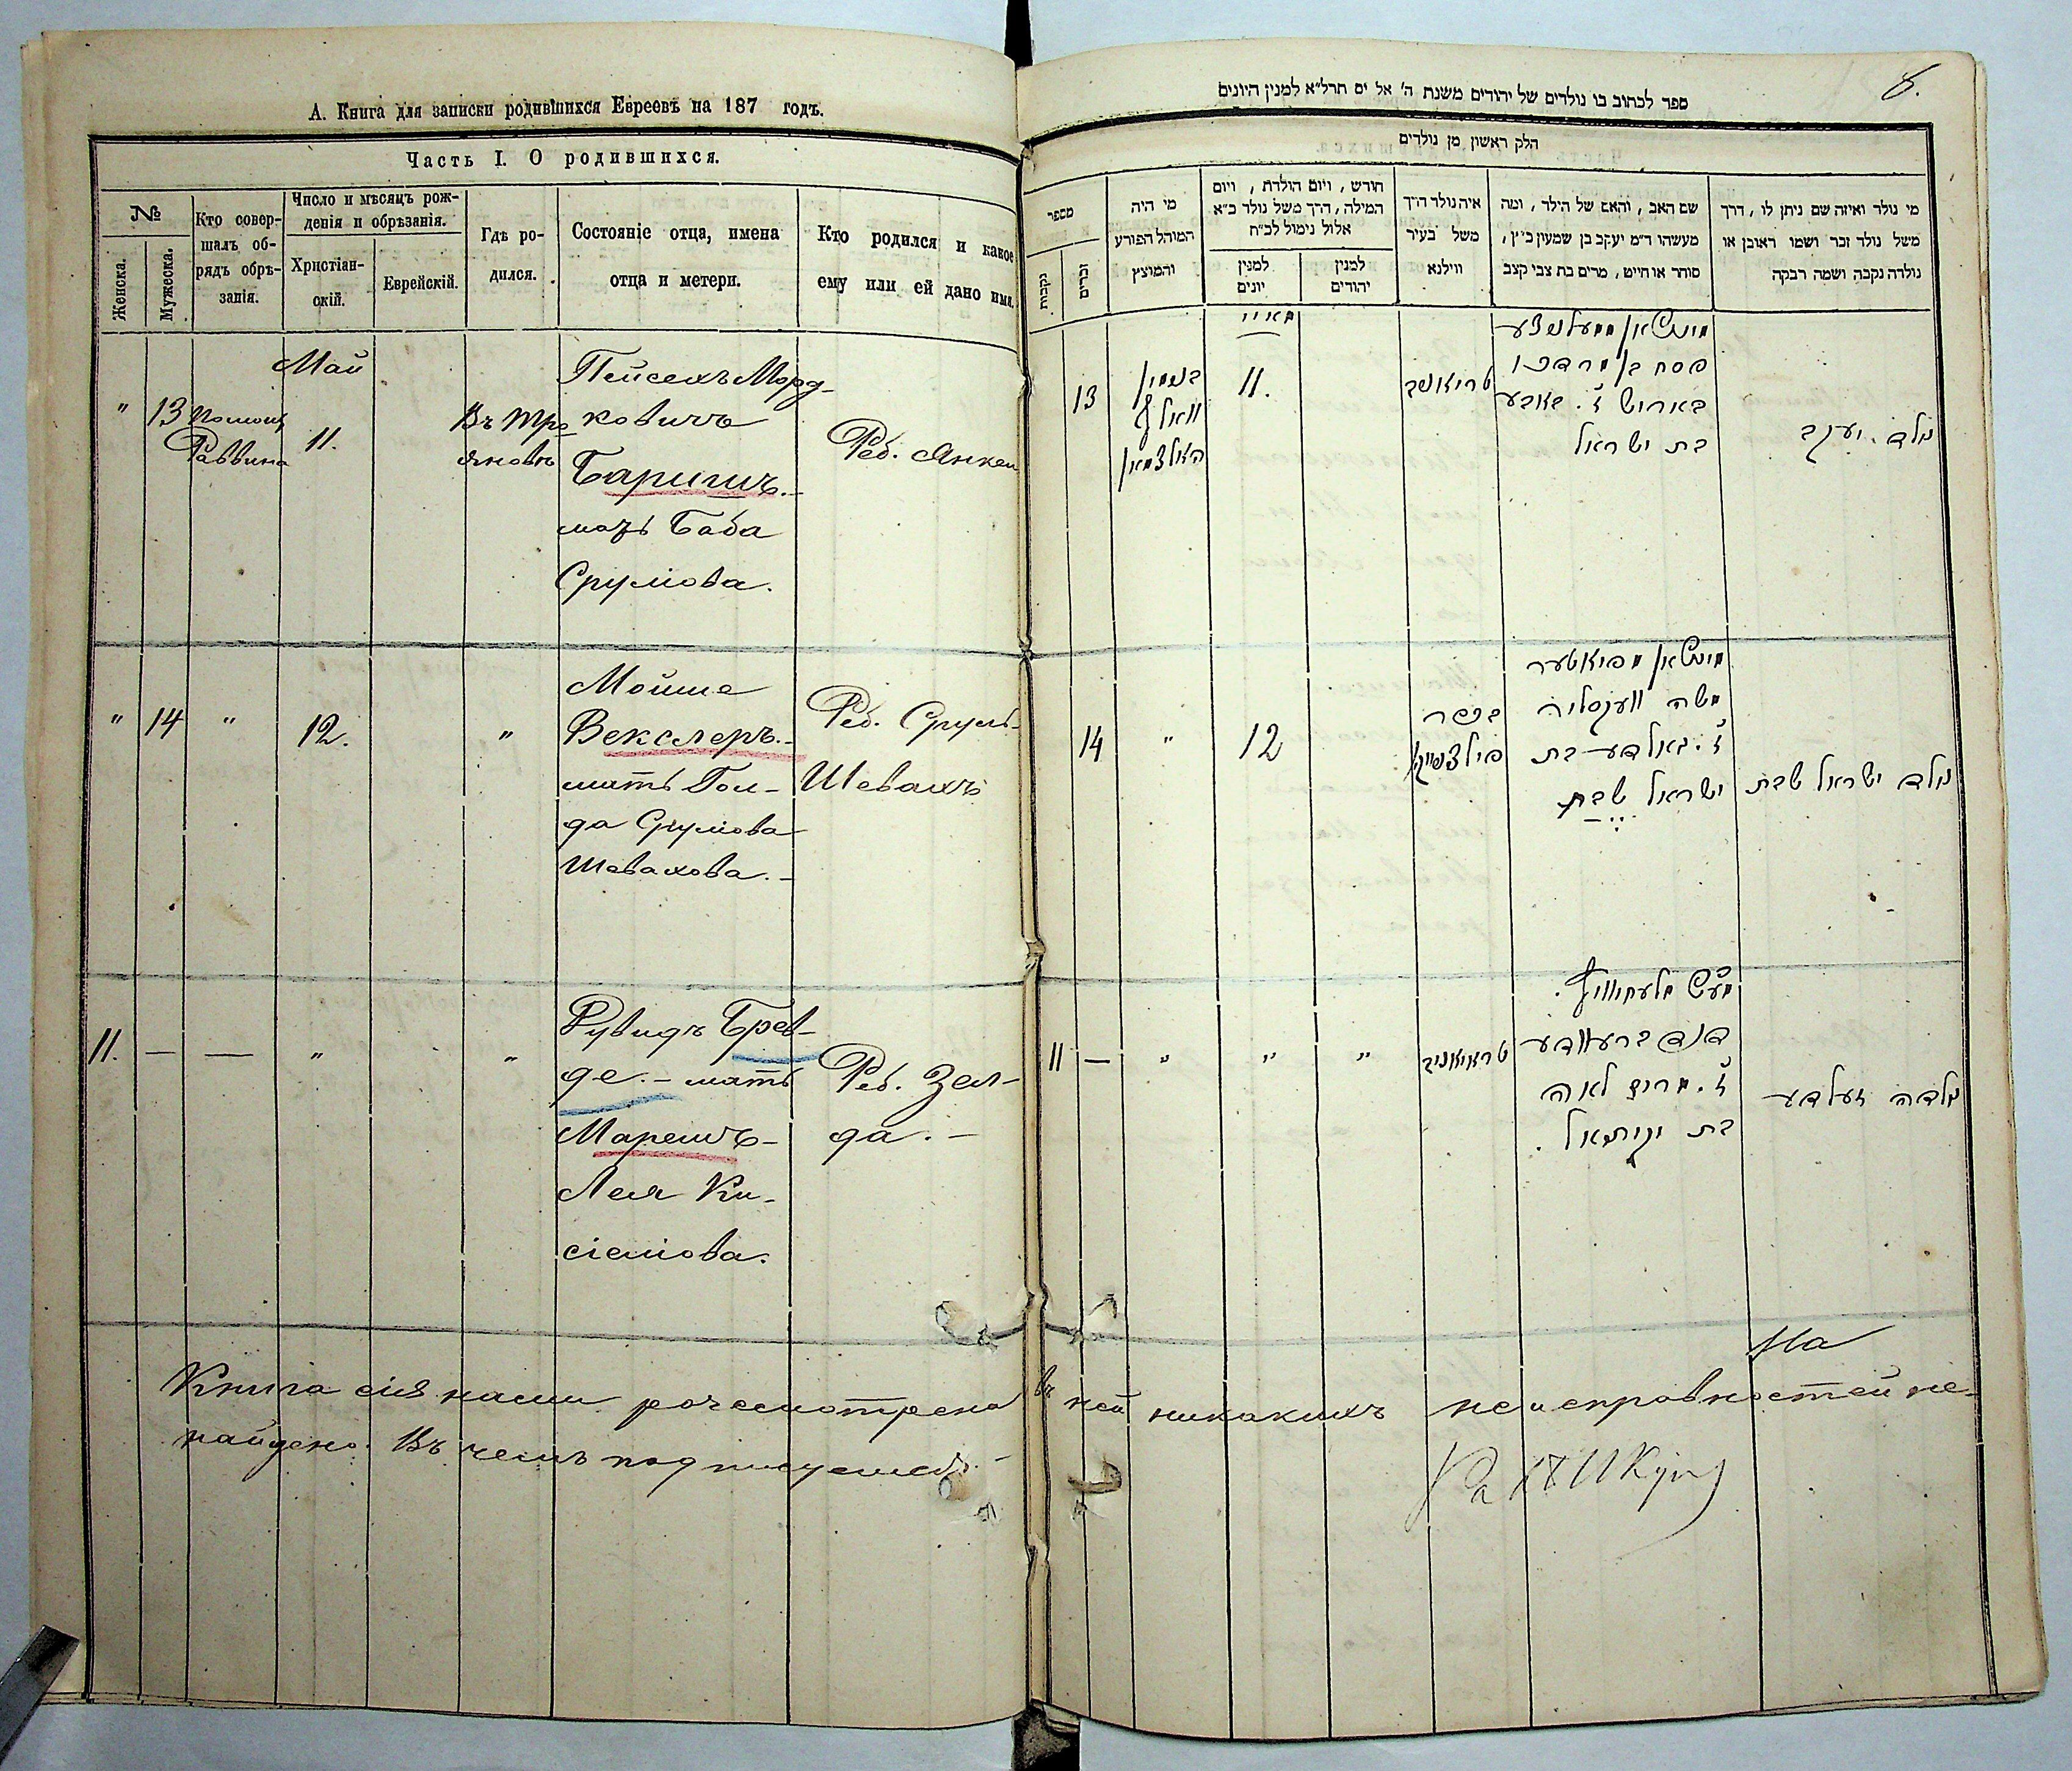 А. Книга для записки родившихся Евреевъ на 187 годъ.
Часть I. О родившихся.
№
Женска.
Мужеска.
Кто совер-
шалъ об-
рядъ обрѣ-
занія.
Число и мѣсяцъ рож-
денія и обрѣзанія.
Христіан-
скій.
Еврейскій.
Гдѣ ро-
дился.
Состояніе отца, имена
отца и метери.
Кто родился и какое
ему или ей дано имя.
Май
" 13 Помощ
Раввина
11.
Въ Тро
яновѣ
Пейсехъ Морд-
ковичъ
Баришъ.-
мать Баба
Срулiова.
Реб. Янкель
" 14 " 12. "
Мойше
Векслеръ.-
мать Гол-
да Срулiова
Шевахова.-
Реб. Сруль-
Шевахъ
11. — — " "
Рувидъ Брев-
де.- мать
Марешъ-
Лея Ки-
сіелiова.
Реб. Зел-
да.-
ספר לכתוב בו נולדים של יהודים משנת ה' אל ים תרל״א למנין היונים
8.
חלק ראשון מן נולדים
מספר
נקבות
זכרים
מי היה
המוהל הפורע
והמוצץ
חודש, ויום הולדת, ויום
המילה, דרך משל נולד כ״א
אלול נימול לכ״ח
למנין
יונים
למנין
יהודים
איה נולד דרך
משל בעיר
ווילנא
שם האב, והאם של הילד, ומה
מעשהו ד״מ יעקב בן שמעון כ״ץ,
סוחר או חייט, מרים בת צבי קצב
מי נולד ואיזה שם ניתן לו, דרך
משל נולד זכר ושמו ראובן או
נולדה נקבה ושמה רבקה
מאיי
13
בנימין
וואלף
האלצמאן
11.
פסח בן מרדכי
באריש ז. באבע
בת ישראל
נולד. יעקב
14 " 12
בכפר
משה וועקסליר
ז. גאלדע בת
ישראל שבח
נולד ישראל שבח
11 — " " "
טראיאניב
ברעוודע
לאה
בת יקותיאל.
נולדה זעלדע
Книга сія нами розсмотрена въ ней никакихъ неисправностей не-
найдено. Въ чемъ подписуемся.-